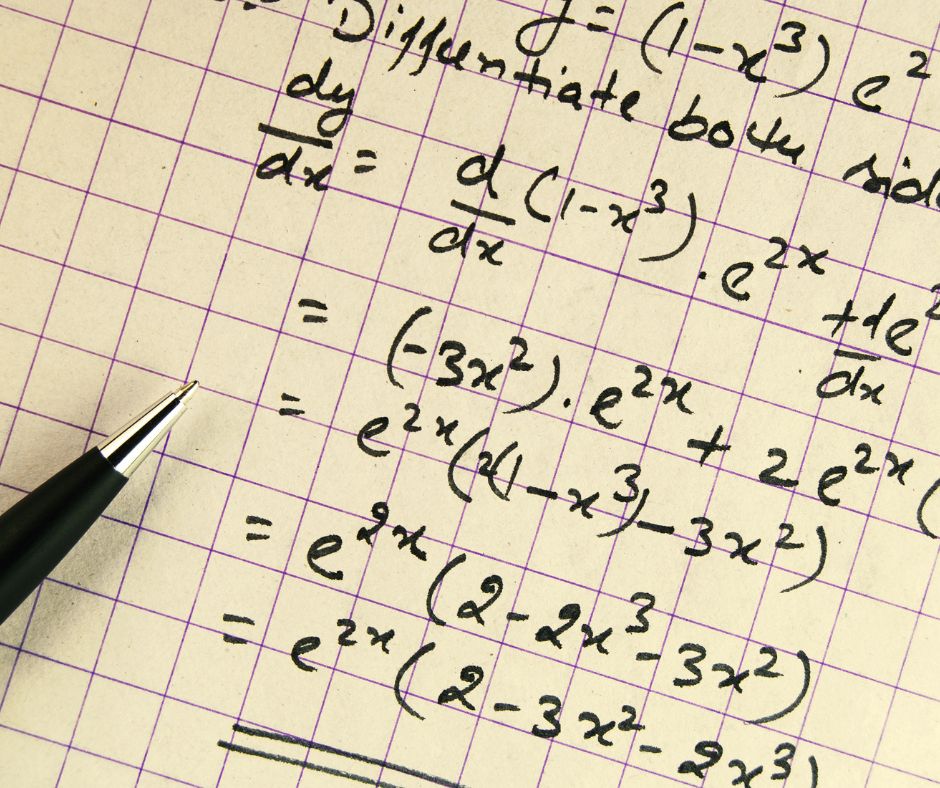 y = (1-x³) e²
Differentiate both side
dy/dx = d/dx (1-x³) . e²ˣ + de²/dx
= (-3x²) . e²ˣ + 2e²ˣ (
= e²ˣ (2(1-x³)-3x²)
= e²ˣ (2-2x³-3x²)
= e²ˣ (2-3x²-2x³)